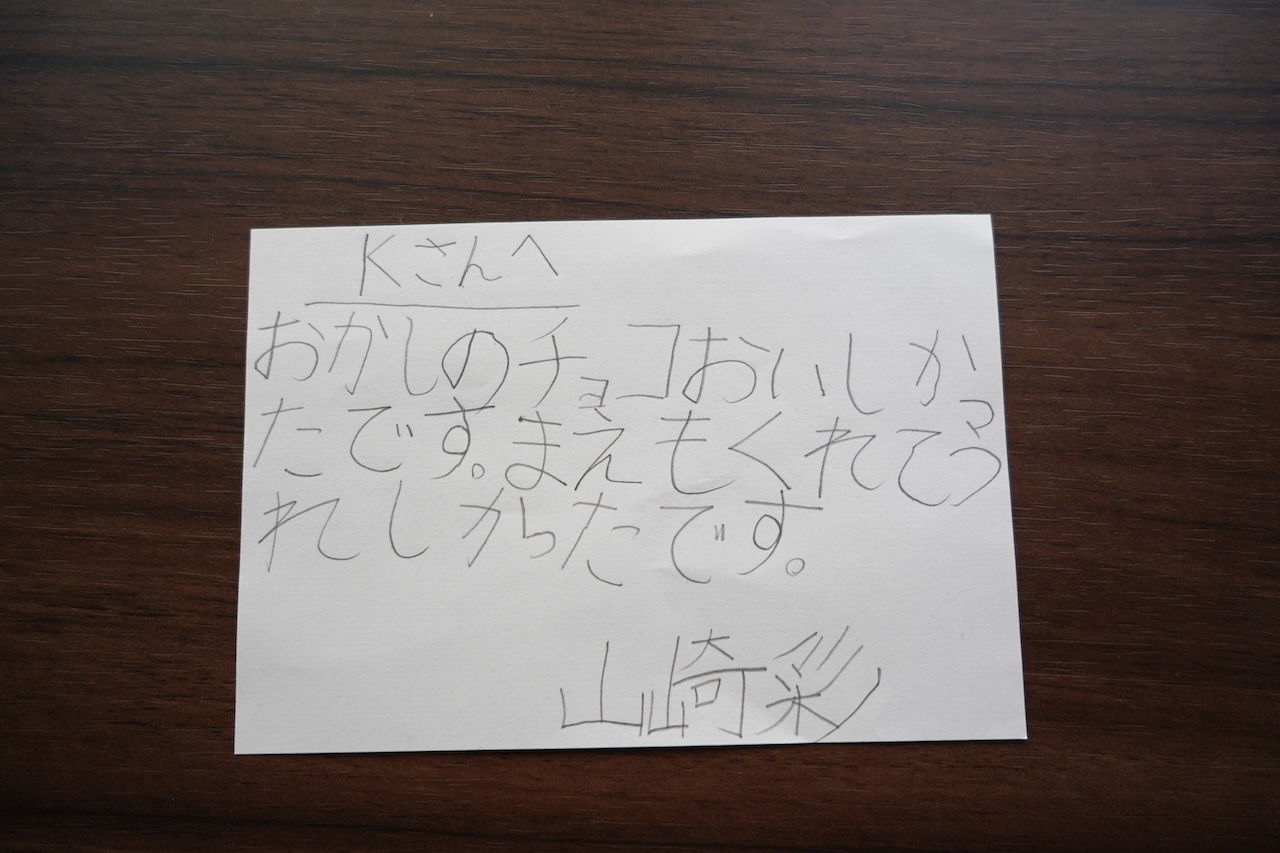 Kさんへ
おかしのチョコおいしかっ
たです。まえもくれてう
れしかったです。
山崎彩